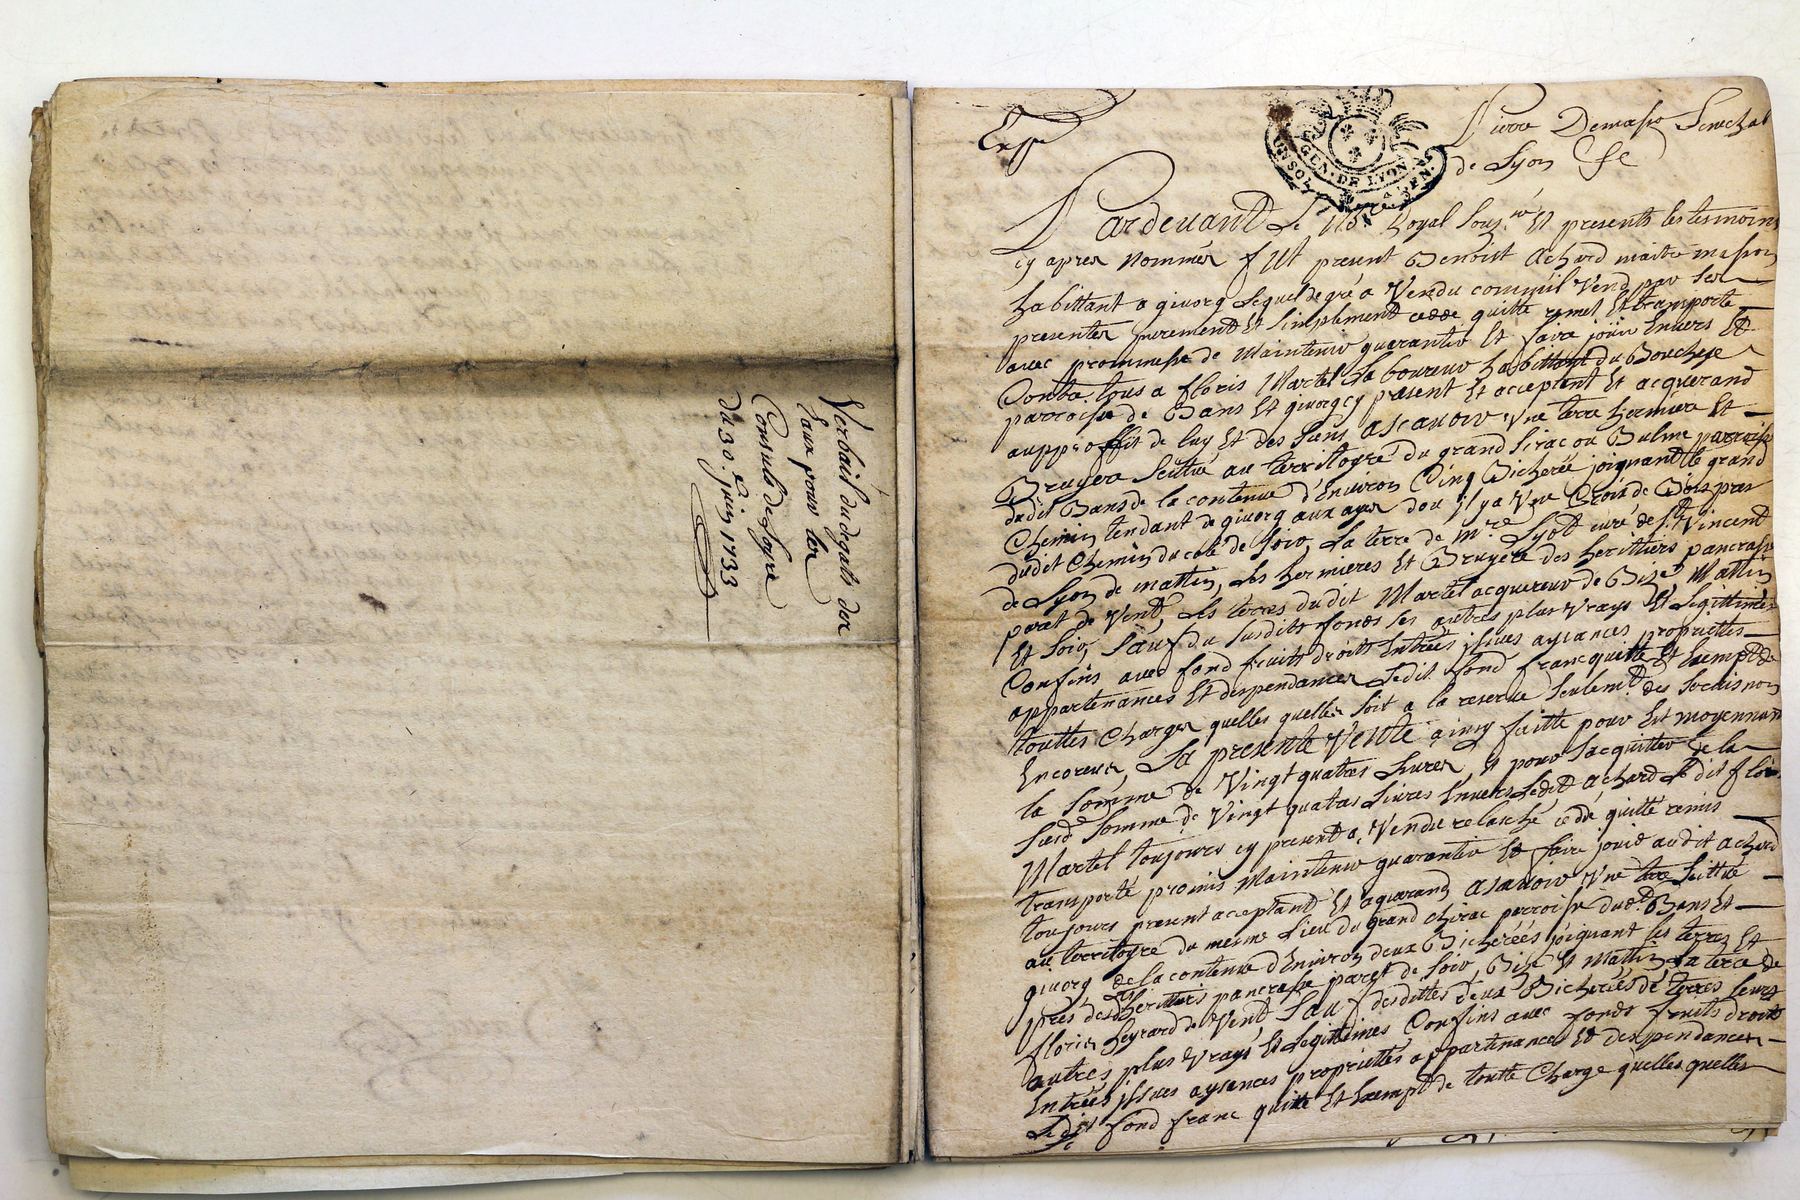 Verbail du degats des
Eaux pour les
Consuls de Loyre
du 30.e juin 1733
GEN. DE LYON
UN SOL 4 DEN.
Pierre Demasso Senechal
de Lyon &c
Pardevant Le No.re Royal Souz.né Et presents les tesmoins
cy apres nommés fut present Benoist Achard maitre masson
habittant a givorg Lequel de gré a Vendu comme il Vend par ses
presentes purement Et simplement cedde quitte remet Et transporte
avec prommesse de Maintenir guarentir Et faire joüir Envers Et
Contre tous a floris Martel Laboureur habittant du Bouchage
parroisse de Bans Et givorg cy present Et acceptant Et acquerand
auppioffit de luy Et des siens ascavoir Une terre hermiere Et
Bruyere scittué au territoyre du grand Sirac ou Balme parroisse
dudit Bans de la contenue d'Environ Cinq Bicherée joignant le grand
Chemin tendant de givorg aux ayes dou il ya Une Croix de Bois par
dudit Chemin du coté de soir, La terre de M.re Lyott curé de S.t Vincent
de Lyon de mattin, Les hermieres Et Bruyere des herittiers pancrasse
paret de Vent, Les terres dudit Martel acquereur de Bize, Mattin
Et soir, Sauf du susdits fonds ses autres plus Vrays Et Legittimes
Confins avec fond fruits droits Entrées issues aysances propriettes
appartenances Et despendances Ledit fond franc quitte Et Exempt de
touttes Charges quelles quelles soit a la reserve seulem.t des Lochis non
Encoreus, La presente Vente ainsy faitte pour Et moyennant
la Somme de Vingt quatres Livres, Et pour sacquitter de la
susd.e Somme de Vingt quatres Livres Envers Ledit Achard Ledit floris
Martel toujours cy present a Vendu relasché ceddé quitté remis
transporté promis Maintenir guarentir Et faire jouir audit achard
toujours present aceptand Et aquerand ascavoir Une terre scittué
au territoyre du mesme Lieu du grand chirac parroisse dud.t Bans Et
givorg de la contenue d'Environ deux Bicherées joignant les terres Et
prés des herittiers pancrasse paret de soir, Bize Et Mattin, La terre de
floris heyrard de Vent Sauf desdittes deux Bicherées de terres leurs
autres plus Vrays Et Legittimes Confins avec fonds fruits droits
Entrées issues aysances propriettés appartenances Et despendances
Ledit fond franc quitte Et Exempt de toutte Charge quelles quelles